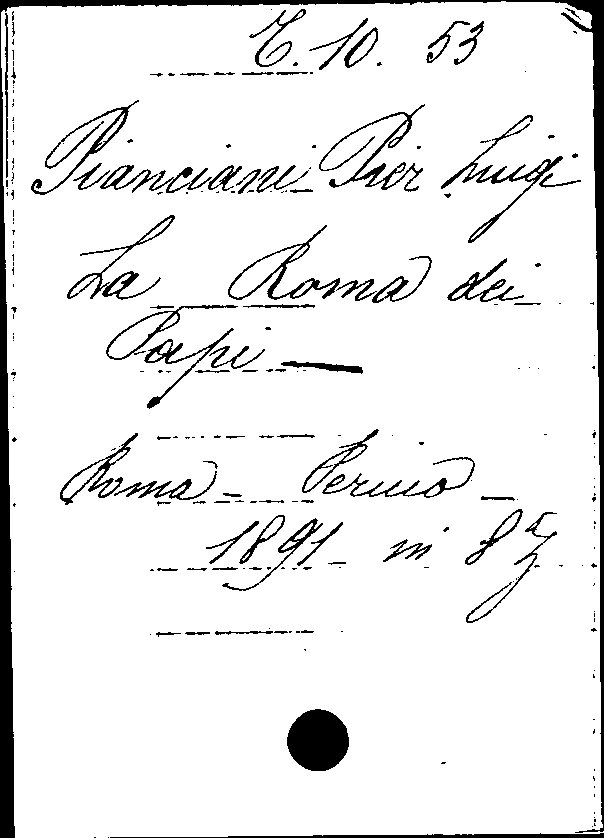 T. 10. 53
Pianciani Pier Luigi
La Roma dei
Papi —
Roma - Perino -
1891 - in 8°